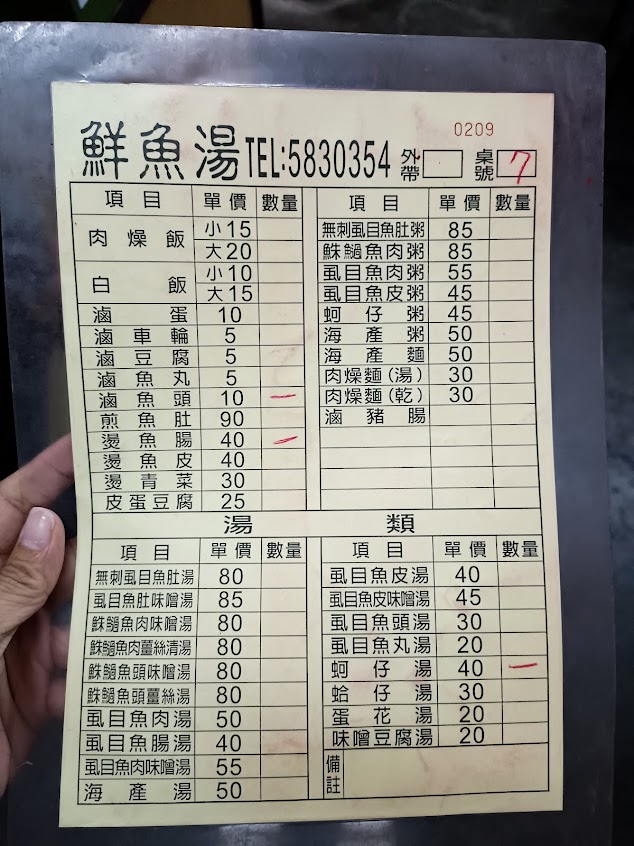 0209
鮮魚湯 TEL:5830354 外帶 桌號 7
項目 單價 數量
肉燥飯 小 15
大 20
白飯 小 10
大 15
滷蛋 10
滷車輪 5
滷豆腐 5
滷魚丸 5
滷魚頭 10 一
煎魚肚 90
燙魚腸 40 一
燙魚皮 40
燙青菜 30
皮蛋豆腐 25
項目 單價 數量
無刺虱目魚肚粥 85
鮢鮘魚肉粥 85
虱目魚肉粥 55
虱目魚皮粥 45
蚵仔粥 45
海產粥 50
海產麵 50
肉燥麵(湯) 30
肉燥麵(乾) 30
滷豬腸
湯類
項目 單價 數量
無刺虱目魚肚湯 80
虱目魚肚味噌湯 85
魚肉味噌湯 80
魚肉薑絲清湯 80
魚頭味噌湯 80
魚頭薑絲湯 80
虱目魚肉湯 50
虱目魚腸湯 40
虱目魚肉味噌湯 55
海產湯 50
項目 單價 數量
虱目魚皮湯 40
虱目魚皮味噌湯 45
虱目魚頭湯 30
虱目魚丸湯 20
蚵仔湯 40 一
蛤仔湯 30
蛋花湯 20
味噌豆腐湯 20
備註